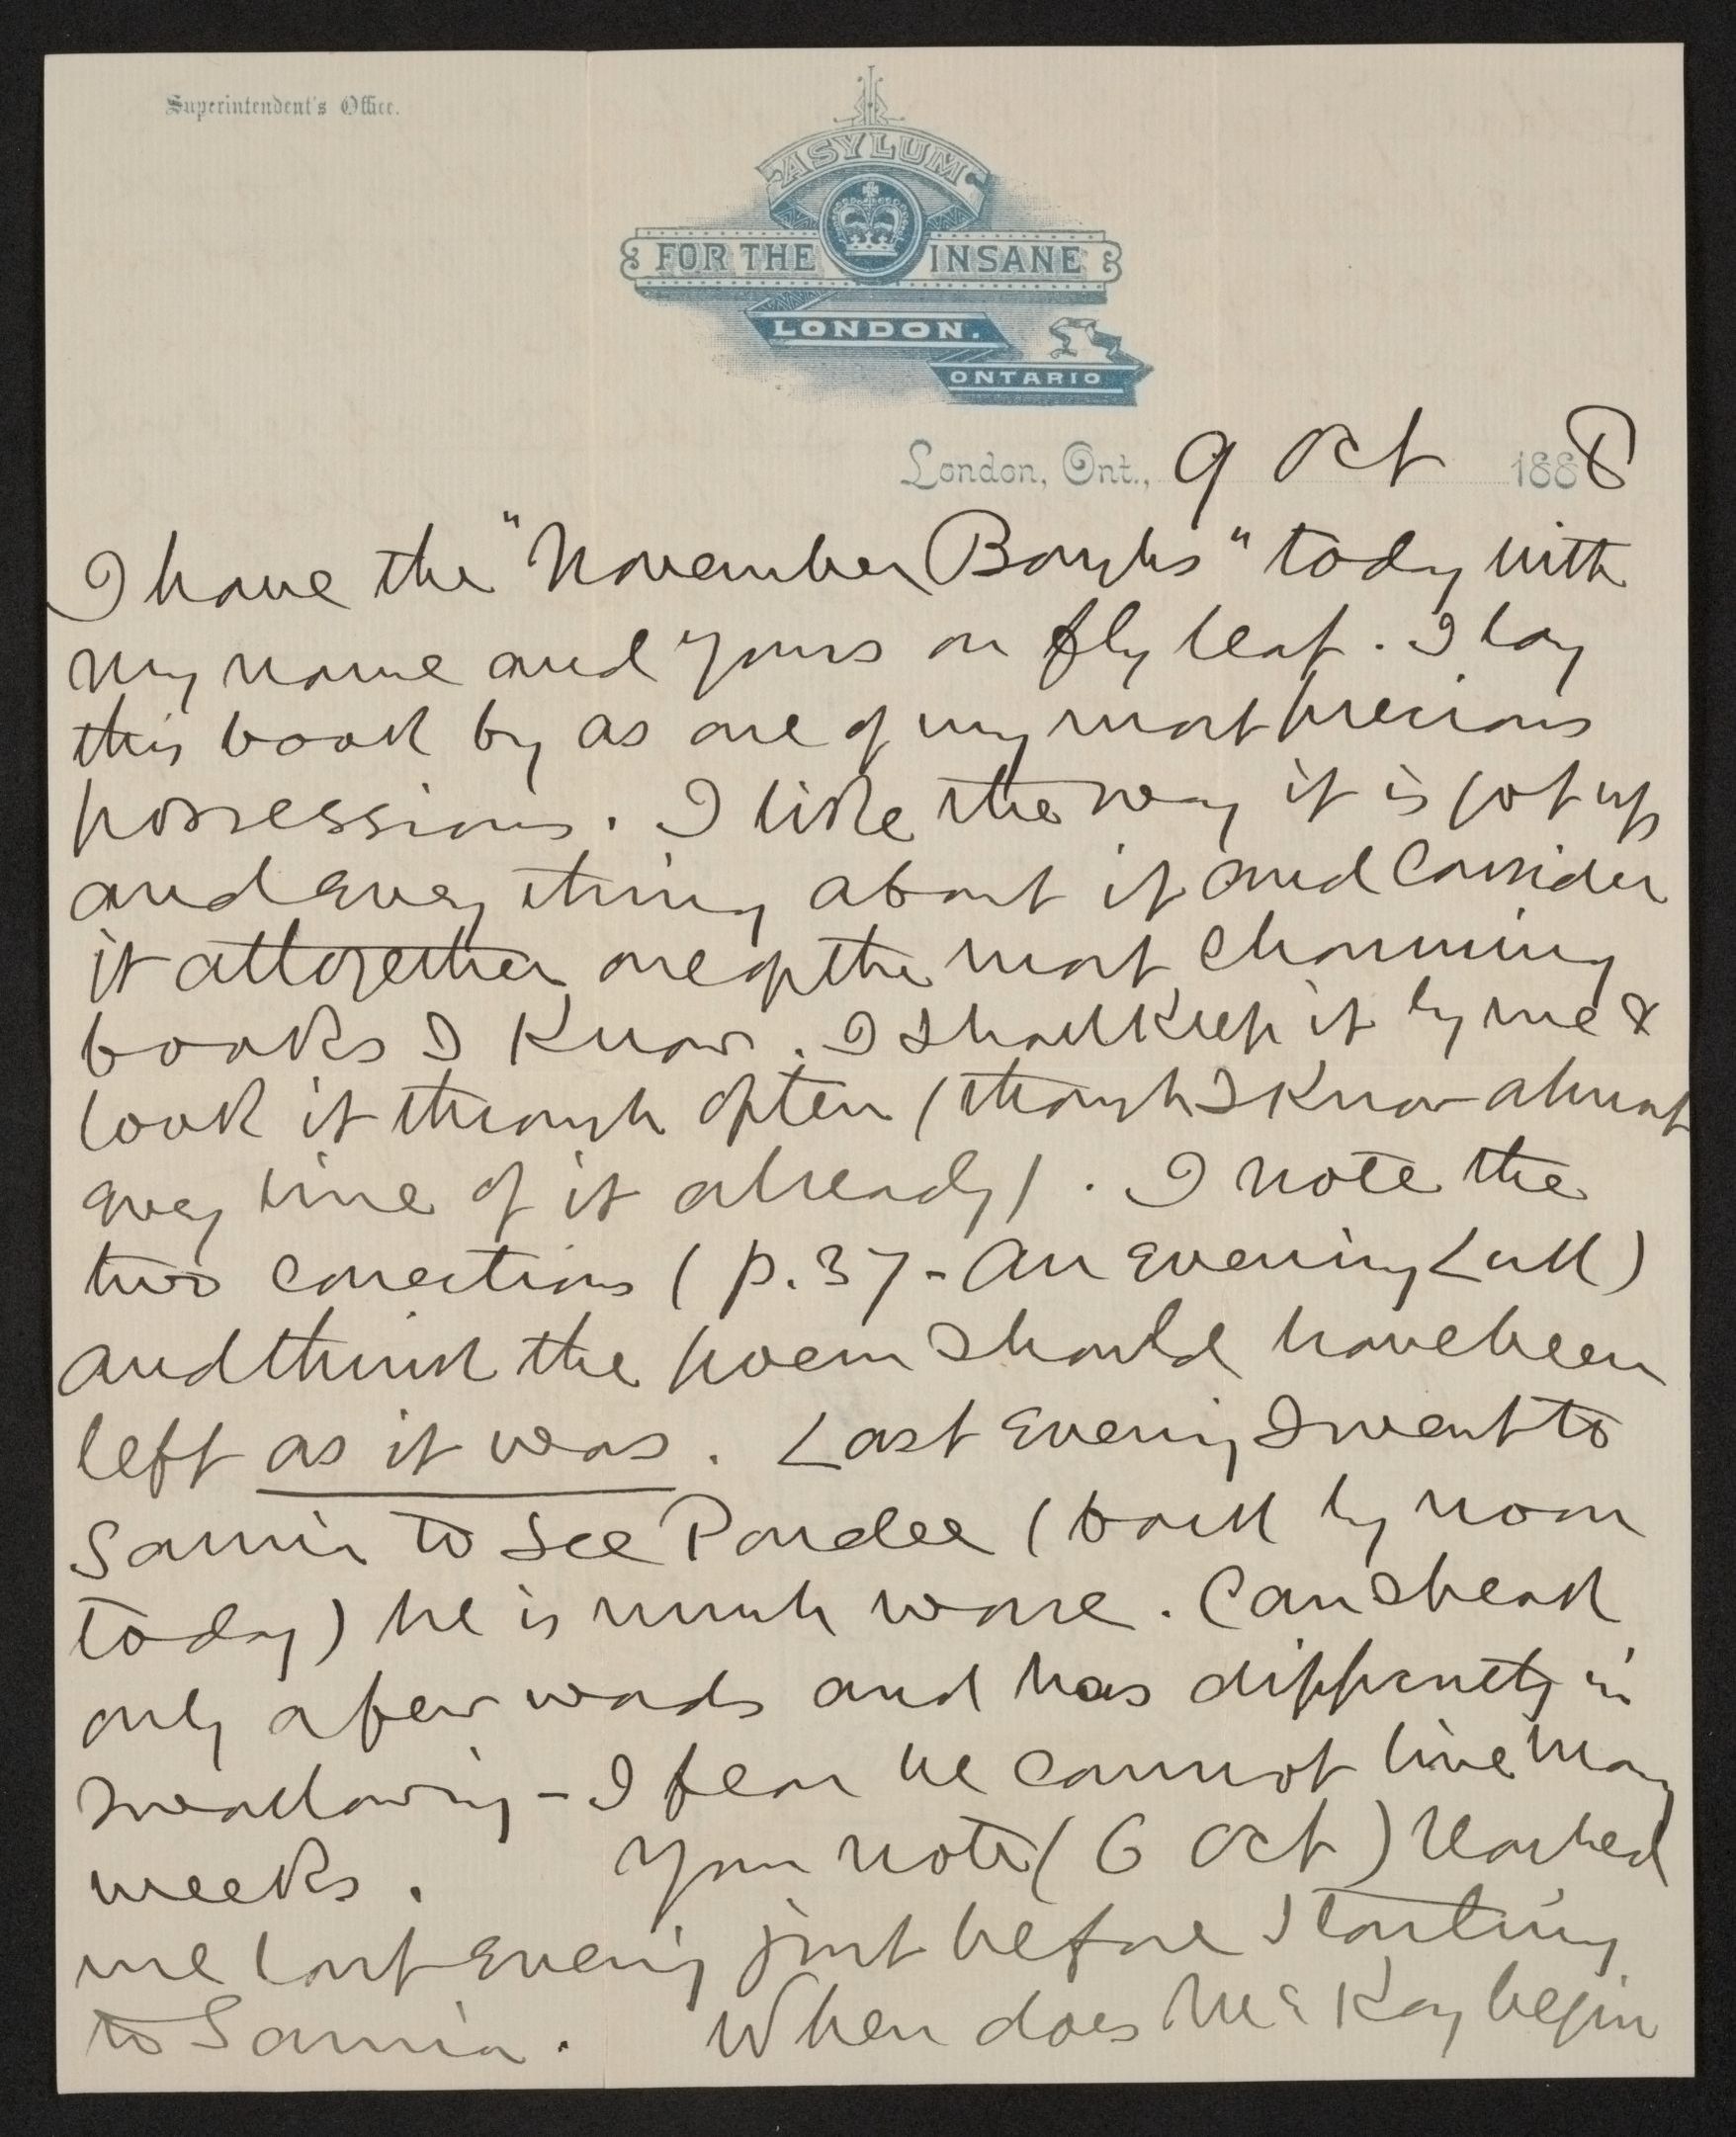 Superintendent's Office.
ASYLUM
FOR THE INSANE
LONDON.
ONTARIO
London, Ont., 9 Oct 1888
I have the "November Boughs" today with
my name and yours on fly leaf. I lay
this book by as one of my most precious
possessions. I like the way it is got up
and every thing about it and consider
it altogether one of the most charming
books I know. I shall keep it by me &
look it through often (though I know almost
every line of it already). I note the
two corrections (p. 37 - An Evening Lull)
and think the poem should have been
left as it was. Last evening I went to
Sarnia to see Pardee (back by noon
today) he is much worse. Can speak
only a few words and has difficulty in
swallowing - I fear he cannot live many
weeks. Your note (6 Oct) reached
me last evening just before starting
to Sarnia. When does McKay begin